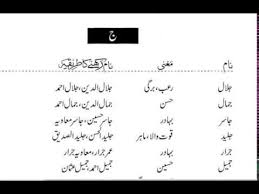 ج
نام معنی نام رکھنے کا طریقہ
جلال رعب، بزرگی جلال الدین، جلال احمد
جمال حسن جمال الدین، جمال احمد
جاسر بہادر جاسر حسین، جاسر معاویہ
جلید قوت والا، ماہر جلید الحسن، جلید الصدیق
جرار بہادر عمر جرار، معاویہ جرار
جمیل حسین جمیل احمد، جمیل عثمان